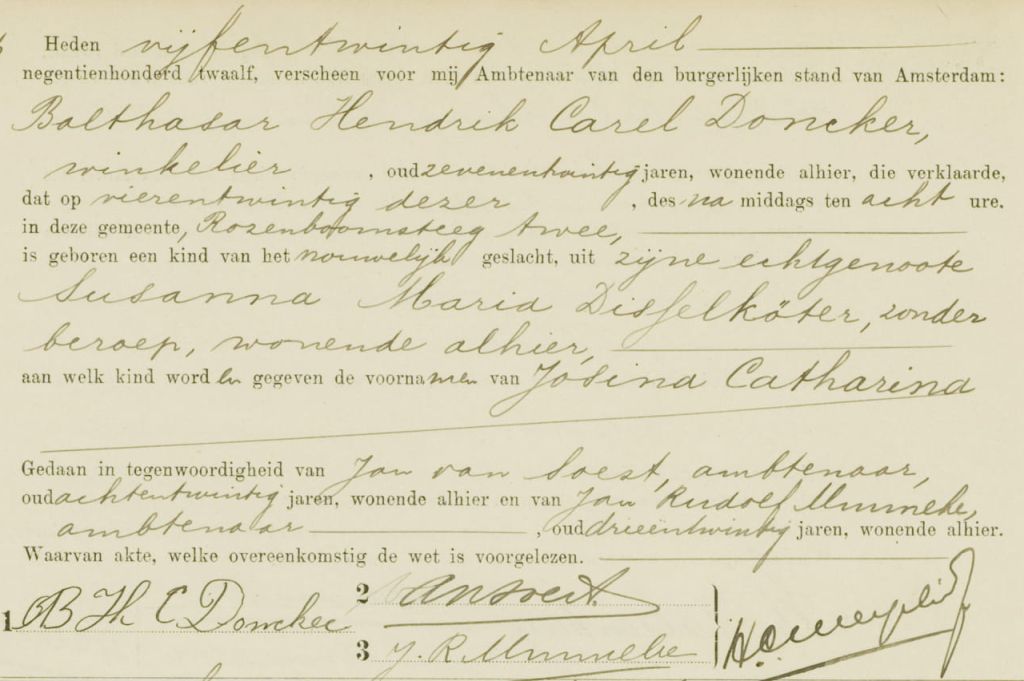 Heden vijfentwintig April
negentienhonderd twaalf, verscheen voor mij Ambtenaar van den burgerlijken stand van Amsterdam:
Balthasar Hendrik Carel Doncker,
winkelier, oud zevenentwintig jaren, wonende alhier, die verklaarde,
dat op vierentwintig dezer, des na middags ten acht ure.
in deze gemeente, Rozenboomsteeg twee,
is geboren een kind van het vrouwelijk geslacht, uit zijne echtgenoote
Susanna Maria Disselköter, zonder
beroep, wonende alhier,
aan welk kind worden gegeven de voornamen van Josina Catharina
Gedaan in tegenwoordigheid van Jan van Soest, ambtenaar,
oud achtentwintig jaren, wonende alhier en van Jan Rudolf
ambtenaar, oud drieëntwintig jaren, wonende alhier.
Waarvan akte, welke overeenkomstig de wet is voorgelezen.
1 B H C Doncker
2 van Soest.
3 J. R.